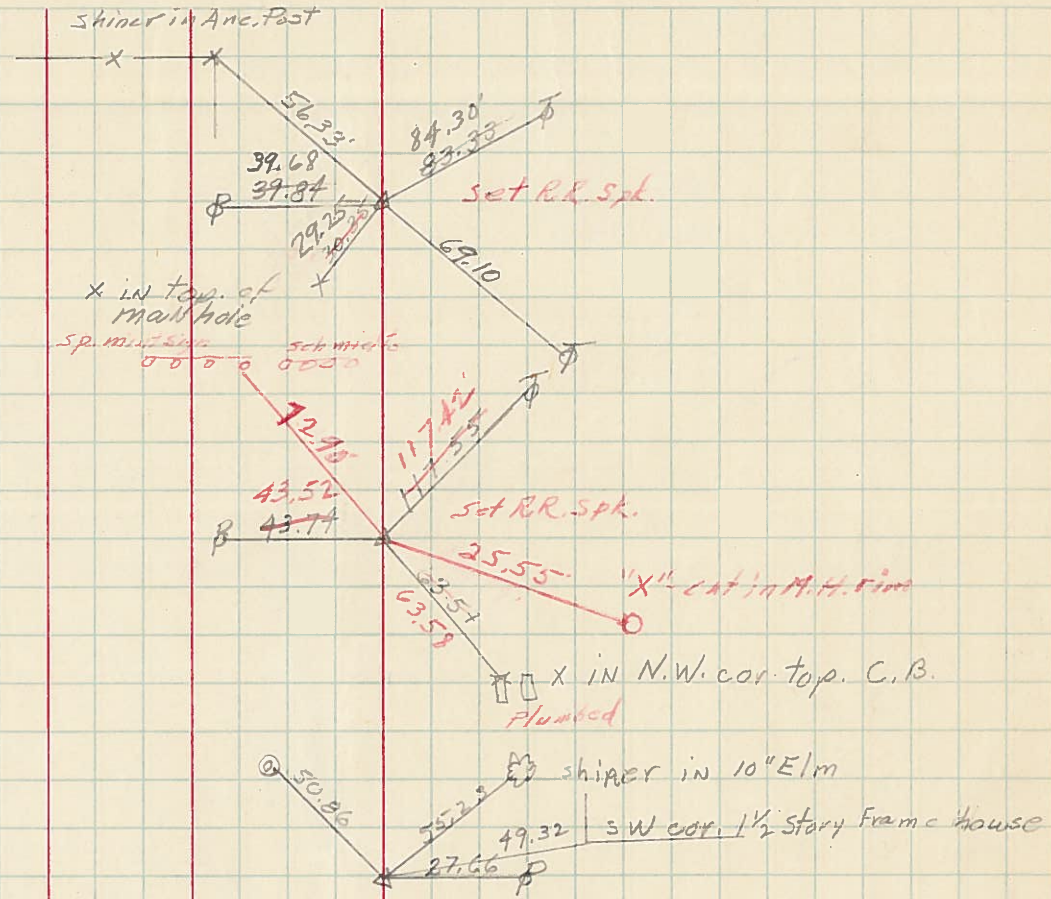 shiner in Anc. Post
56.33
84.30'
83.33
39.68
39.84
set R.R. Spk.
29.25
30.30
69.10
X IN top. of
manhole
72.90
117.42'
117.55
43.52
43.74
set RR. Spk.
25.55
"X"-cut in M.H. rim
63.54
63.58
X IN N.W. cor. top. C.B.
Plumbed
50.86
shiner in 10" Elm
55.23
49.32
SW cor. 1½ Story Frame house
27.66